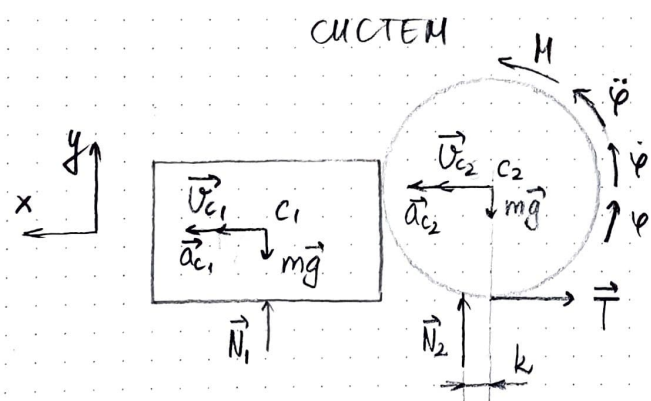 СИСТЕМ
M
φ̈
φ̇
φ
y
x
V⃗c₁
c₁
a⃗c₁
mg⃗
N⃗₁
V⃗c₂
c₂
a⃗c₂
mg⃗
T⃗
N⃗₂
k